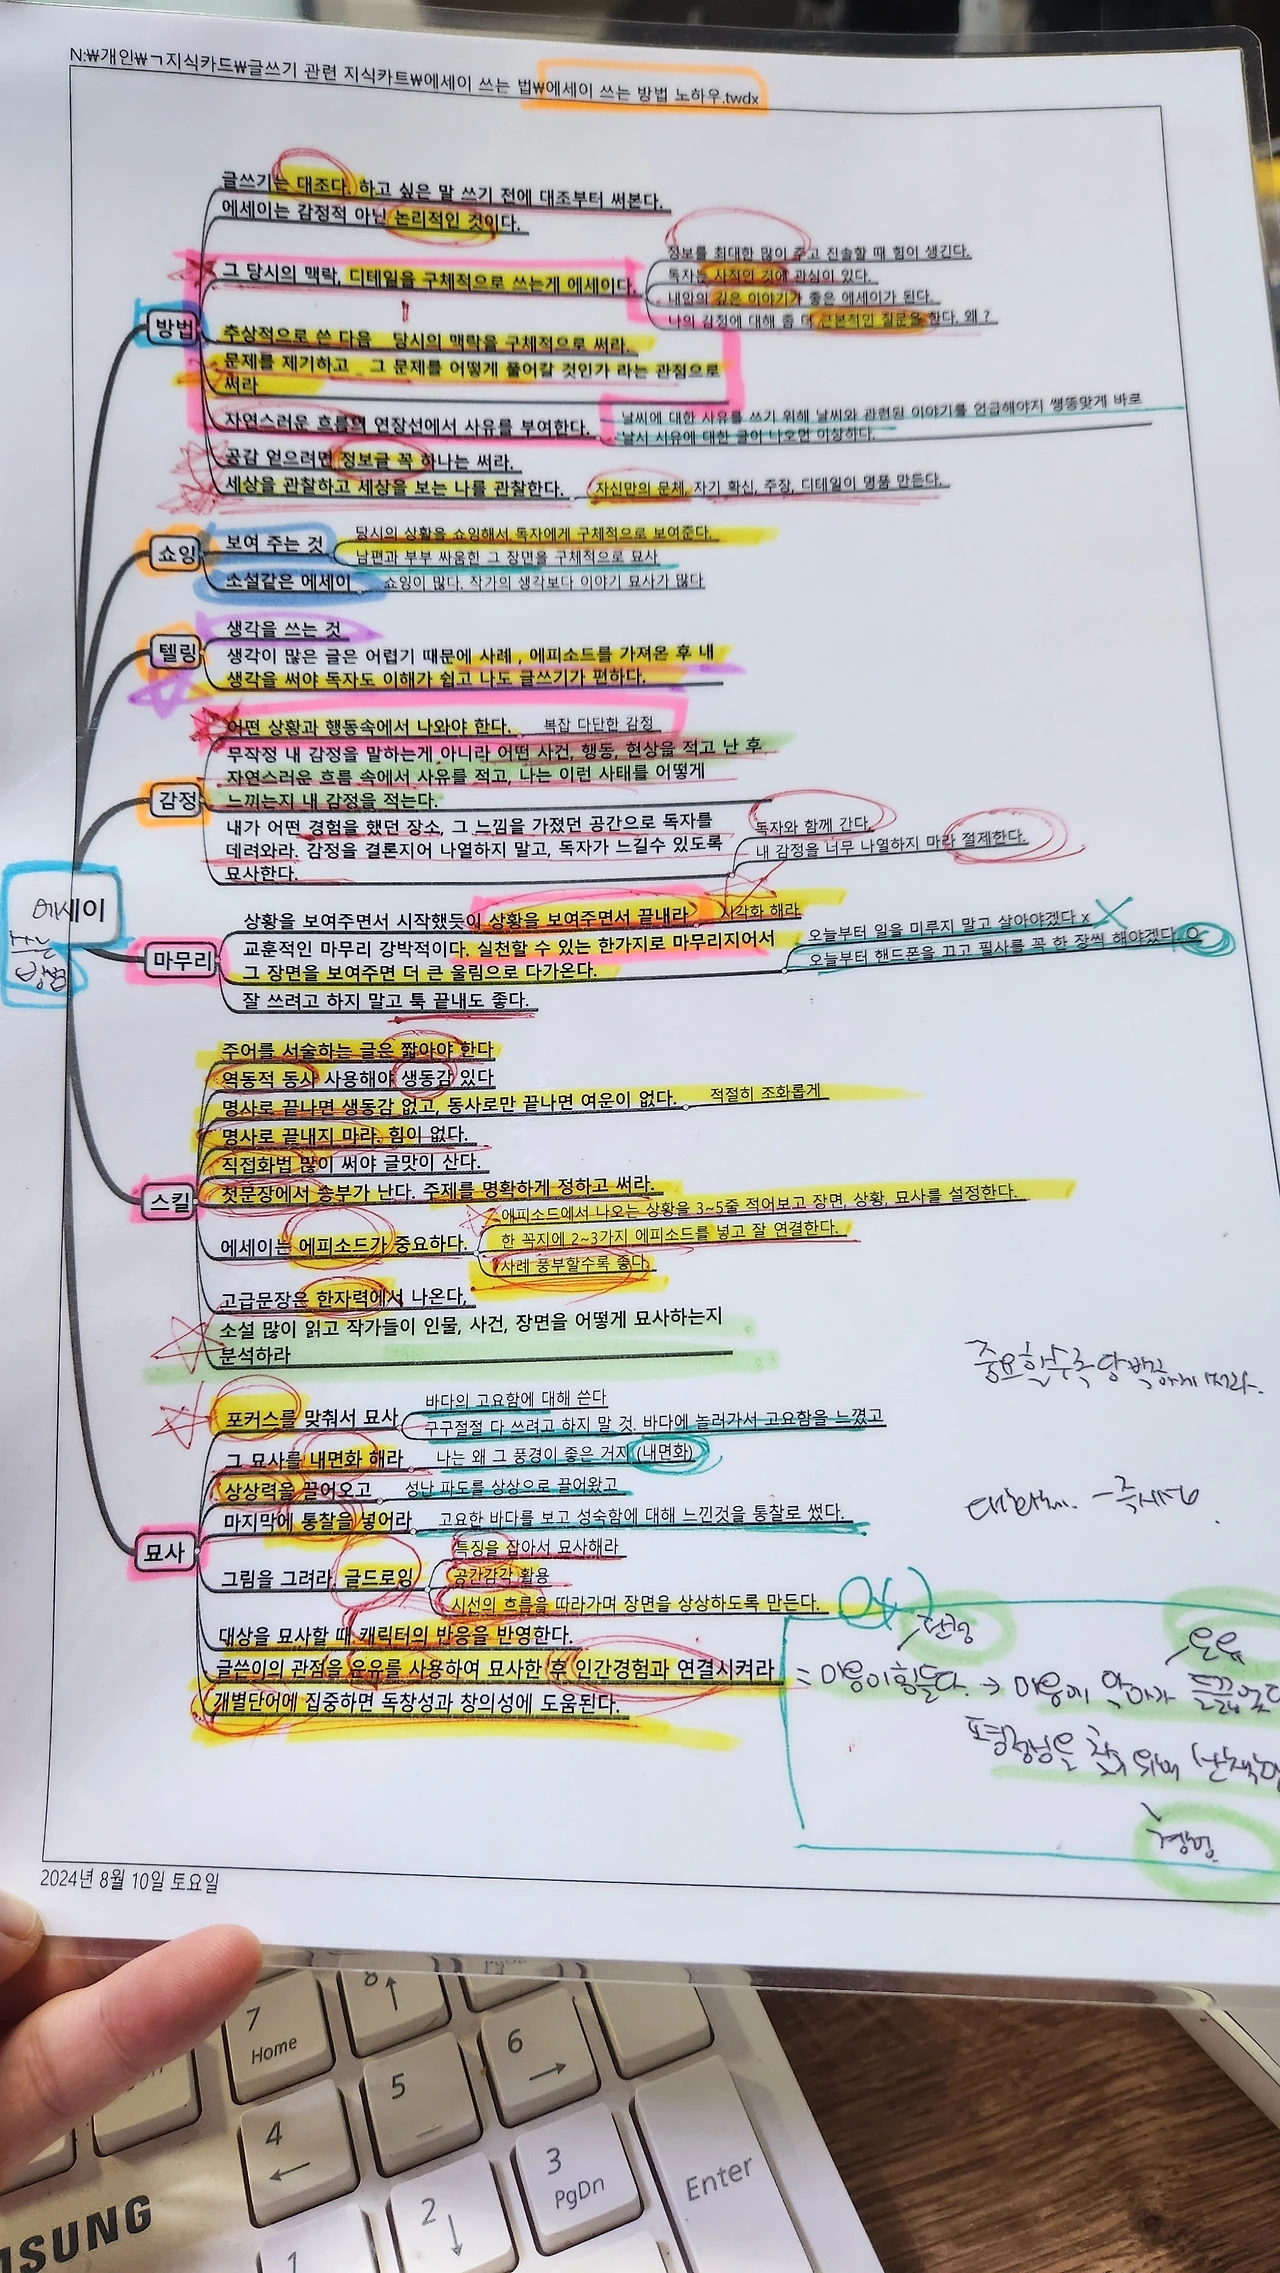 N:₩개인₩ㄱ지식카드₩글쓰기 관련 지식카트₩에세이 쓰는 법₩에세이 쓰는 방법 노하우.twdx
에세이
쓰는
방법
방법
글쓰기는 대조다. 하고 싶은 말 쓰기 전에 대조부터 써본다.
에세이는 감정적 아닌 논리적인 것이다.
그 당시의 맥락, 디테일을 구체적으로 쓰는게 에세이다.
정보를 최대한 많이 주고 진솔할 때 힘이 생긴다.
독자는 사적인 것에 관심이 있다.
내안의 깊은 이야기가 좋은 에세이가 된다.
나의 감정에 대해 좀 더 근본적인 질문을 한다. 왜 ?
추상적으로 쓴 다음 당시의 맥락을 구체적으로 써라.
문제를 제기하고 그 문제를 어떻게 풀어갈 것인가 라는 관점으로
써라
자연스러운 흐름의 연장선에서 사유를 부여한다.
날씨에 대한 사유를 쓰기 위해 날씨와 관련된 이야기를 언급해야지 쌩뚱맞게 바로
날시 사유에 대한 글이 나오면 이상하다.
공감 얻으려면 정보글 꼭 하나는 써라.
세상을 관찰하고 세상을 보는 나를 관찰한다.
자신만의 문체, 자기 확신, 주장, 디테일이 명품 만든다.
쇼잉
보여 주는 것
당시의 상활을 쇼잉해서 독자에게 구체적으로 보여준다.
남편과 부부 싸움한 그 장면을 구체적으로 묘사
소설같은 에세이
쇼잉이 많다. 작가의 생각보다 이야기 묘사가 많다
텔링
생각을 쓰는 것
생각이 많은 글은 어렵기 때문에 사례 , 에피소드를 가져온 후 내
생각을 써야 독자도 이해가 쉽고 나도 글쓰기가 편하다.
감정
어떤 상황과 행동속에서 나와야 한다.
복잡 다단한 감정
무작정 내 감정을 말하는게 아니라 어떤 사건, 행동, 현상을 적고 난 후
자연스러운 흐름 속에서 사유를 적고, 나는 이런 사태를 어떻게
느끼는지 내 감정을 적는다.
내가 어떤 경험을 했던 장소, 그 느낌을 가졌던 공간으로 독자를
데려와라. 감정을 결론지어 나열하지 말고, 독자가 느낄수 있도록
묘사한다.
독자와 함께 간다.
내 감정을 너무 나열하지 마라 절제한다.
마무리
상황을 보여주면서 시작했듯이 상황을 보여주면서 끝내라
시각화 해라
교훈적인 마무리 강박적이다. 실천할 수 있는 한가지로 마무리지어서
그 장면을 보여주면 더 큰 울림으로 다가온다.
오늘부터 일을 미루지 말고 살아야겠다 x
오늘부터 핸드폰을 끄고 필사를 꼭 한 장씩 해야겠다. O
잘 쓰려고 하지 말고 툭 끝내도 좋다.
스킬
주어를 서술하는 글은 짧아야 한다
역동적 동사 사용해야 생동감 있다
명사로 끝나면 생동감 없고, 동사로만 끝나면 여운이 없다.
적절히 조화롭게
명사로 끝내지 마라. 힘이 없다.
직접화법 많이 써야 글맛이 산다.
첫문장에서 승부가 난다. 주제를 명확하게 정하고 써라.
에세이는 에피소드가 중요하다.
에피소드에서 나오는 상황을 3~5줄 적어보고 장면, 상황, 묘사를 설정한다.
한 꼭지에 2~3가지 에피소드를 넣고 잘 연결한다.
사례 풍부할수록 좋다.
고급문장은 한자력에서 나온다,
소설 많이 읽고 작가들이 인물, 사건, 장면을 어떻게 묘사하는지
분석하라
중요할수록 담백하게 써라.
묘사
포커스를 맞춰서 묘사
바다의 고요함에 대해 쓴다
구구절절 다 쓰려고 하지 말 것. 바다에 놀러가서 고요함을 느꼈고
그 묘사를 내면화 해라
나는 왜 그 풍경이 좋은 거지 (내면화)
상상력을 끌어오고
성난 파도를 상상으로 끌어왔고
마지막에 통찰을 넣어라
고요한 바다를 보고 성숙함에 대해 느낀것을 통찰로 썼다.
그림을 그려라. 글드로잉
특징을 잡아서 묘사해라
공간감각 활용
시선의 흐름을 따라가며 장면을 상상하도록 만든다.
대상을 묘사할 때 캐릭터의 반응을 반영한다.
글쓴이의 관점을 은유를 사용하여 묘사한 후 인간경험과 연결시켜라
개별단어에 집중하면 독창성과 창의성에 도움된다.
예)
관점
은유
= 마음이 힘들다. → 마음에 악마가 들끓었다
평정심을 찾기 위해
경험
2024년 8월 10일 토요일
7
Home
8
↑
4
←
5
6
→
2
↓
3
PgDn
1
Enter
SUNG